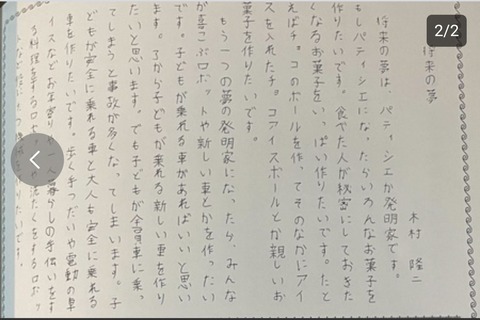 2/2
将来の夢
木村 隆二
将来の夢は、パティシエか発明家です。
もしパティシエになったらいろんなお菓子を
作りたいです。食べた人が秘客にしておきた
くなるお菓子をいっぱい作りたいです。たと
えばチョコのボールを作ってそのなかにアイ
スを入れたチョコアイスボールとか親しいお
菓子を作りたいです。
もう一つの夢の発明家になったら、みんな
が喜こぶロボットや新しい車とかを作ったい
です。子どもが乗れる車があればいいと思い
ます。だから子どもが乗れる新しい車を作り
たいと思います。でも子どもが全員車に乗っ
てしまうと事故が多くなってしまいます。子
どもが安全に乗れる車と大人も安全に乗れる
車を作りたいです。歩く手つだいや電動の車
イスなどお年寄りや一人暮らしの手伝いをす
る料理をするロボットや洗たくをするロボッ